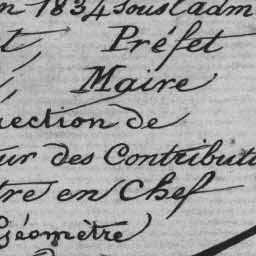 n 1834 sous l'adm
t, Préfet
Maire
ection de
ur des Contributi
tre en Chef
Géomètre